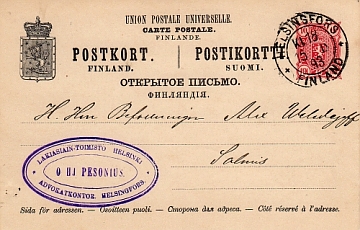 UNION POSTALE UNIVERSELLE.
CARTE POSTALE.
FINLANDE.
POSTKORT. POSTIKORTTI
FINLAND. SUOMI.
ОТКРЫТОЕ ПИСЬМО.
ФИНЛЯНДІЯ.
HELSINGFORS
FINLAND
H. Herr
Alex
LAKIASIAIN-TOIMISTO HELSINKI
O HJ PESONIUS.
ADVOKATKONTOR. HELSINGFORS.
Sida för adressen. - Osoitteen puoli. - Сторона для адреса. - Côté réservé à l'adresse.